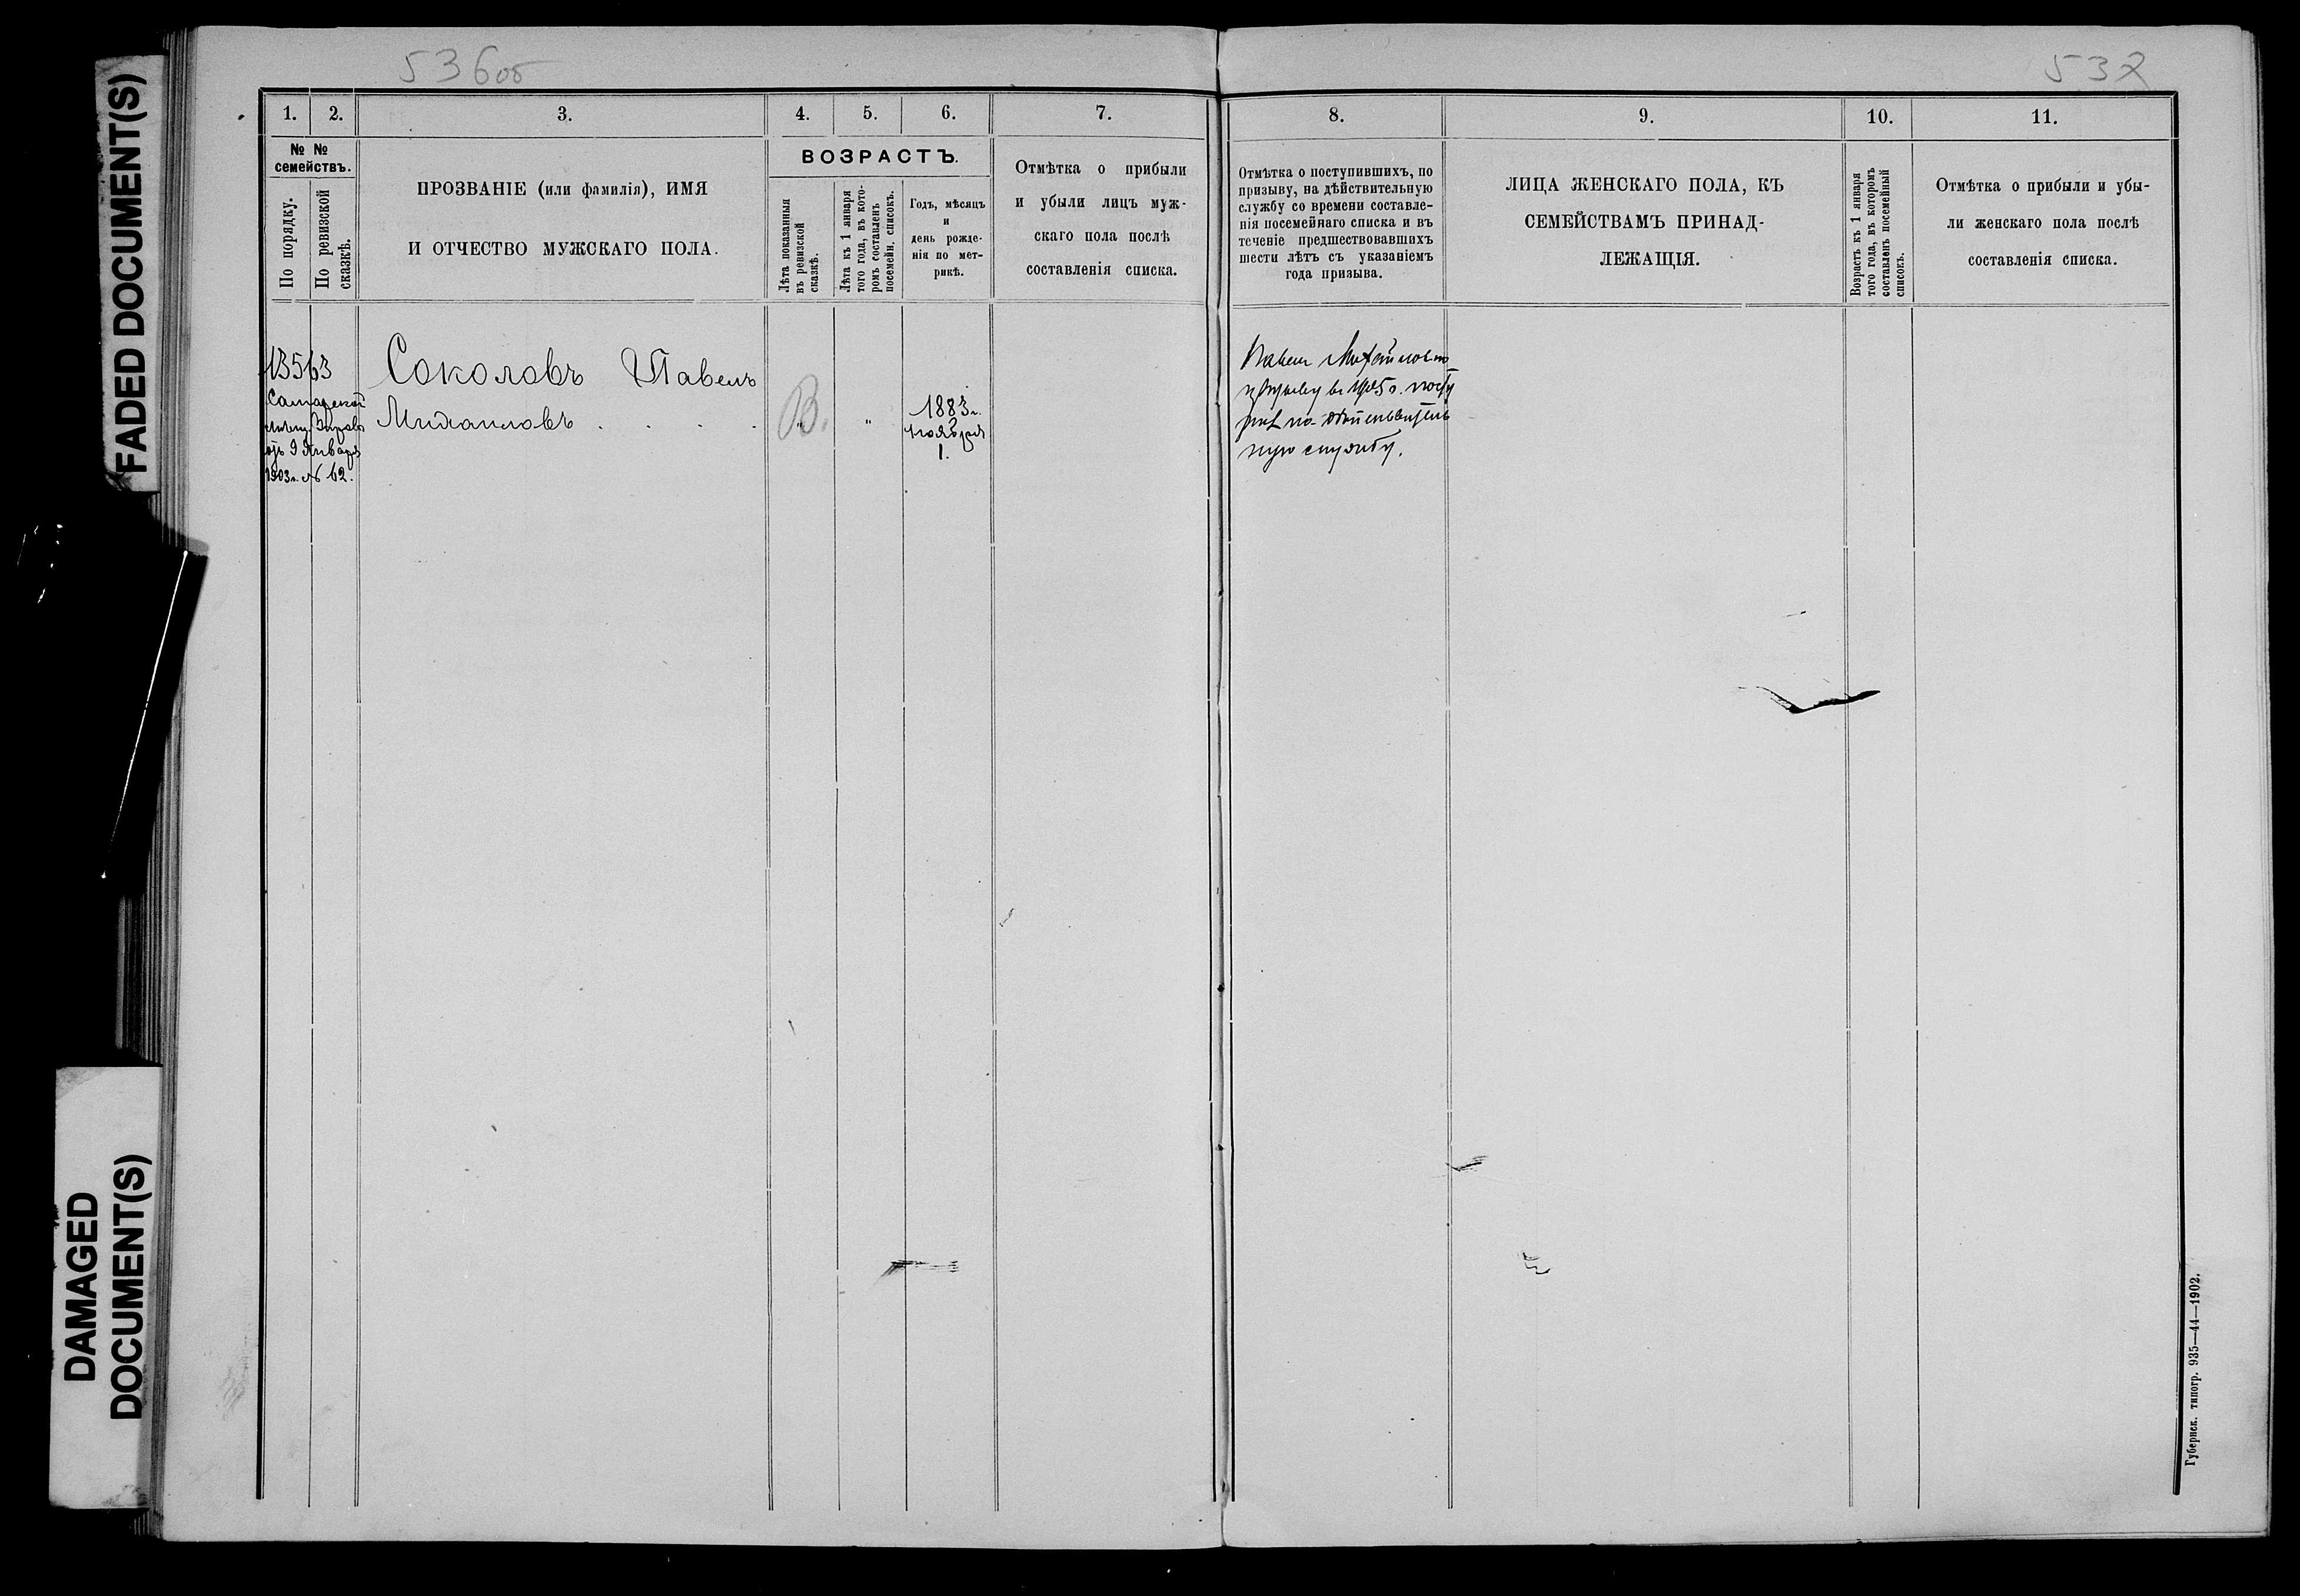 FADED DOCUMENT(S)
DAMAGED
DOCUMENT(S)
536об
1. 2. 3. 4. 5. 6. 7.
№ №
семействъ.
По порядку.
По ревизской
сказкѣ.
ПРОЗВАНІЕ (или фамилія), ИМЯ
И ОТЧЕСТВО МУЖСКАГО ПОЛА.
ВОЗРАСТЪ.
Лѣта показанныя
въ ревизской
сказкѣ.
Лѣта къ 1 января
того года, въ кото-
ромъ составленъ
посемейн. списокъ.
Годъ, мѣсяцъ
и
день рожде-
нія по мет-
рикѣ.
Отмѣтка о прибыли
и убыли лицъ муж-
скаго пола послѣ
составленія списка.
13563
Самарской
Управы
отъ 9 Января
1903г. № 62.
Соколовъ Павелъ
Михаиловъ . . . .
В.
"
"
1883г.
Ноября
1.
537
8. 9. 10. 11.
Отмѣтка о поступившихъ, по
призыву, на дѣйствительную
службу со времени составле-
нія посемейнаго списка и въ
теченіе предшествовавшихъ
шести лѣтъ съ указаніемъ
года призыва.
ЛИЦА ЖЕНСКАГО ПОЛА, КЪ
СЕМЕЙСТВАМЪ ПРИНАД-
ЛЕЖАЩІЯ.
Возрастъ къ 1 января
того года, въ которомъ
составленъ посемейный
списокъ.
Отмѣтка о прибыли и убы-
ли женскаго пола послѣ
составленія списка.
Павелъ Михайловъ по
призыву въ 1905 г. посту
на дѣйствитель
ную службу.
Губернск. типогр. 935—44—1902.